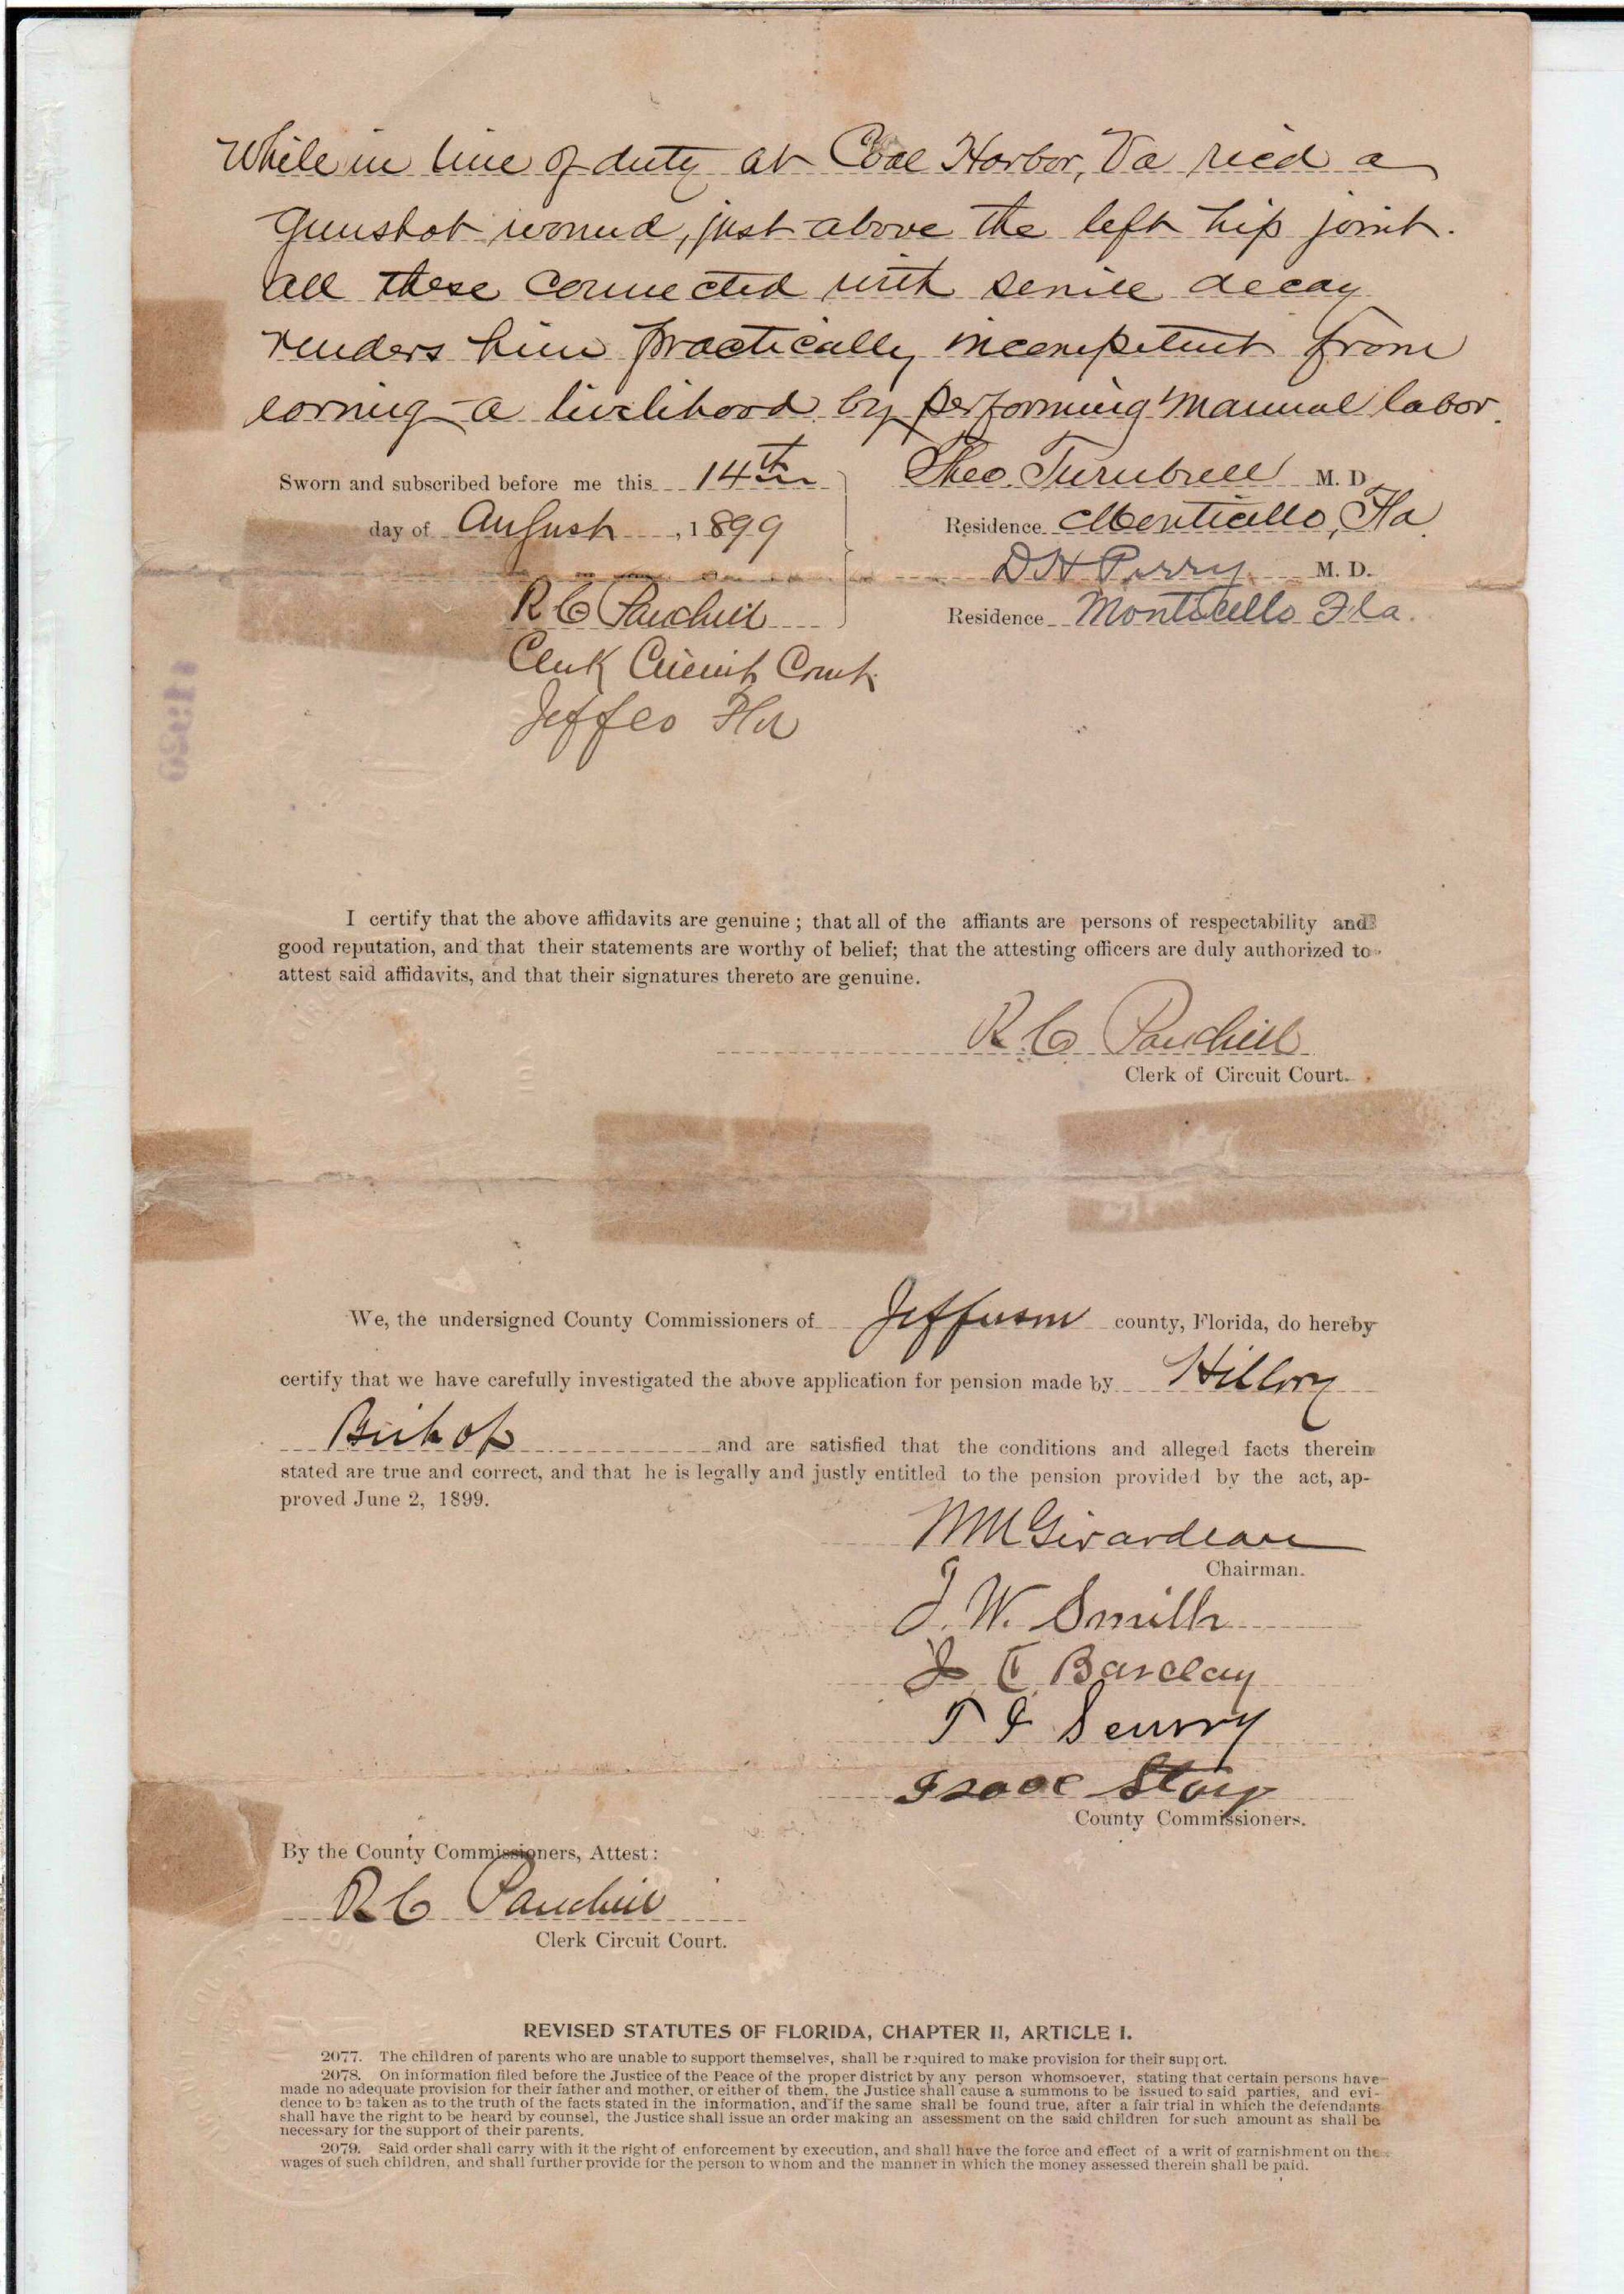 While in line of duty at Coal Harbor, Va ried a
Gunshot wound, just above the left hip joint.
All these connected with senile decay
renders him practically incompetent from
earning a livelihood by performing manual labor.
Sworn and subscribed before me this 14th
day of August, 1899
Theo. Turnbull M. D.
Residence Monticello, Fla.
D H Perry M. D.
Residence Monticello Fla.
R C
Clerk Circuit Court
Jeff Co Fla
I certify that the above affidavits are genuine; that all of the affiants are persons of respectability and
good reputation, and that their statements are worthy of belief; that the attesting officers are duly authorized to
attest said affidavits, and that their signatures thereto are genuine.
R. C.
Clerk of Circuit Court.
We, the undersigned County Commissioners of Jefferson county, Florida, do hereby
certify that we have carefully investigated the above application for pension made by Hillory
Bishop and are satisfied that the conditions and alleged facts therein
stated are true and correct, and that he is legally and justly entitled to the pension provided by the act, ap-
proved June 2, 1899.
W M Girardeau
Chairman.
J. W. Smith
Barclay
Scurry
Isaac Story
County Commissioners.
By the County Commissioners, Attest:
R C
Clerk Circuit Court.
REVISED STATUTES OF FLORIDA, CHAPTER II, ARTICLE I.
2077. The children of parents who are unable to support themselves, shall be required to make provision for their support.
2078. On information filed before the Justice of the Peace of the proper district by any person whomsoever, stating that certain persons have
made no adequate provision for their father and mother, or either of them, the Justice shall cause a summons to be issued to said parties, and evi-
dence to be taken as to the truth of the facts stated in the information, and if the same shall be found true, after a fair trial in which the defendants
shall have the right to be heard by counsel, the Justice shall issue an order making an assessment on the said children for such amount as shall be
necessary for the support of their parents.
2079. Said order shall carry with it the right of enforcement by execution, and shall have the force and effect of a writ of garnishment on the
wages of such children, and shall further provide for the person to whom and the manner in which the money assessed therein shall be paid.